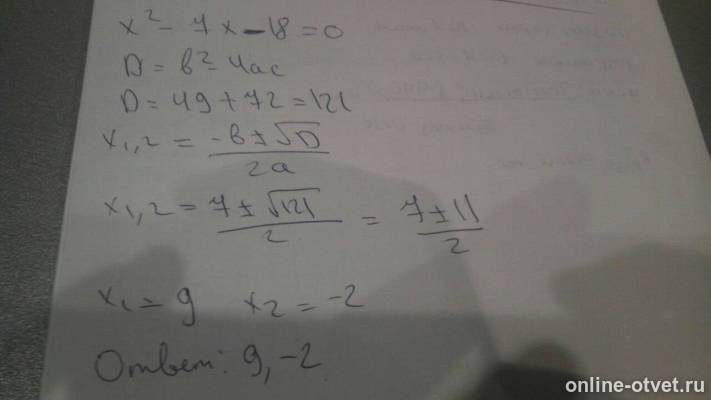 x² - 7x - 18 = 0
D = b² - 4ac
D = 49 + 72 = 121
x₁,₂ = (-b ± √D) / 2a
x₁,₂ = (7 ± √121) / 2 = (7 ± 11) / 2
x₁ = 9 x₂ = -2
Ответ: 9, -2
online-otvet.ru